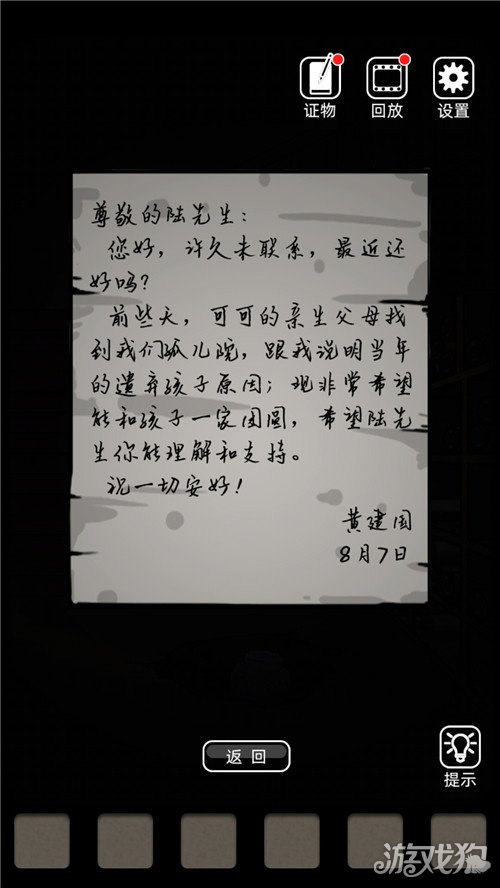 证物 回放 设置
尊敬的陆先生：
您好，许久未联系，最近还
好吗？
前些天，可可的亲生父母找
到我们孤儿院，跟我说明当年
的遗弃孩子原因；现非常希望
能和孩子一家团圆，希望陆先
生你能理解和支持。
祝一切安好！
黄建国
8月7日
返回
提示
游戏狗